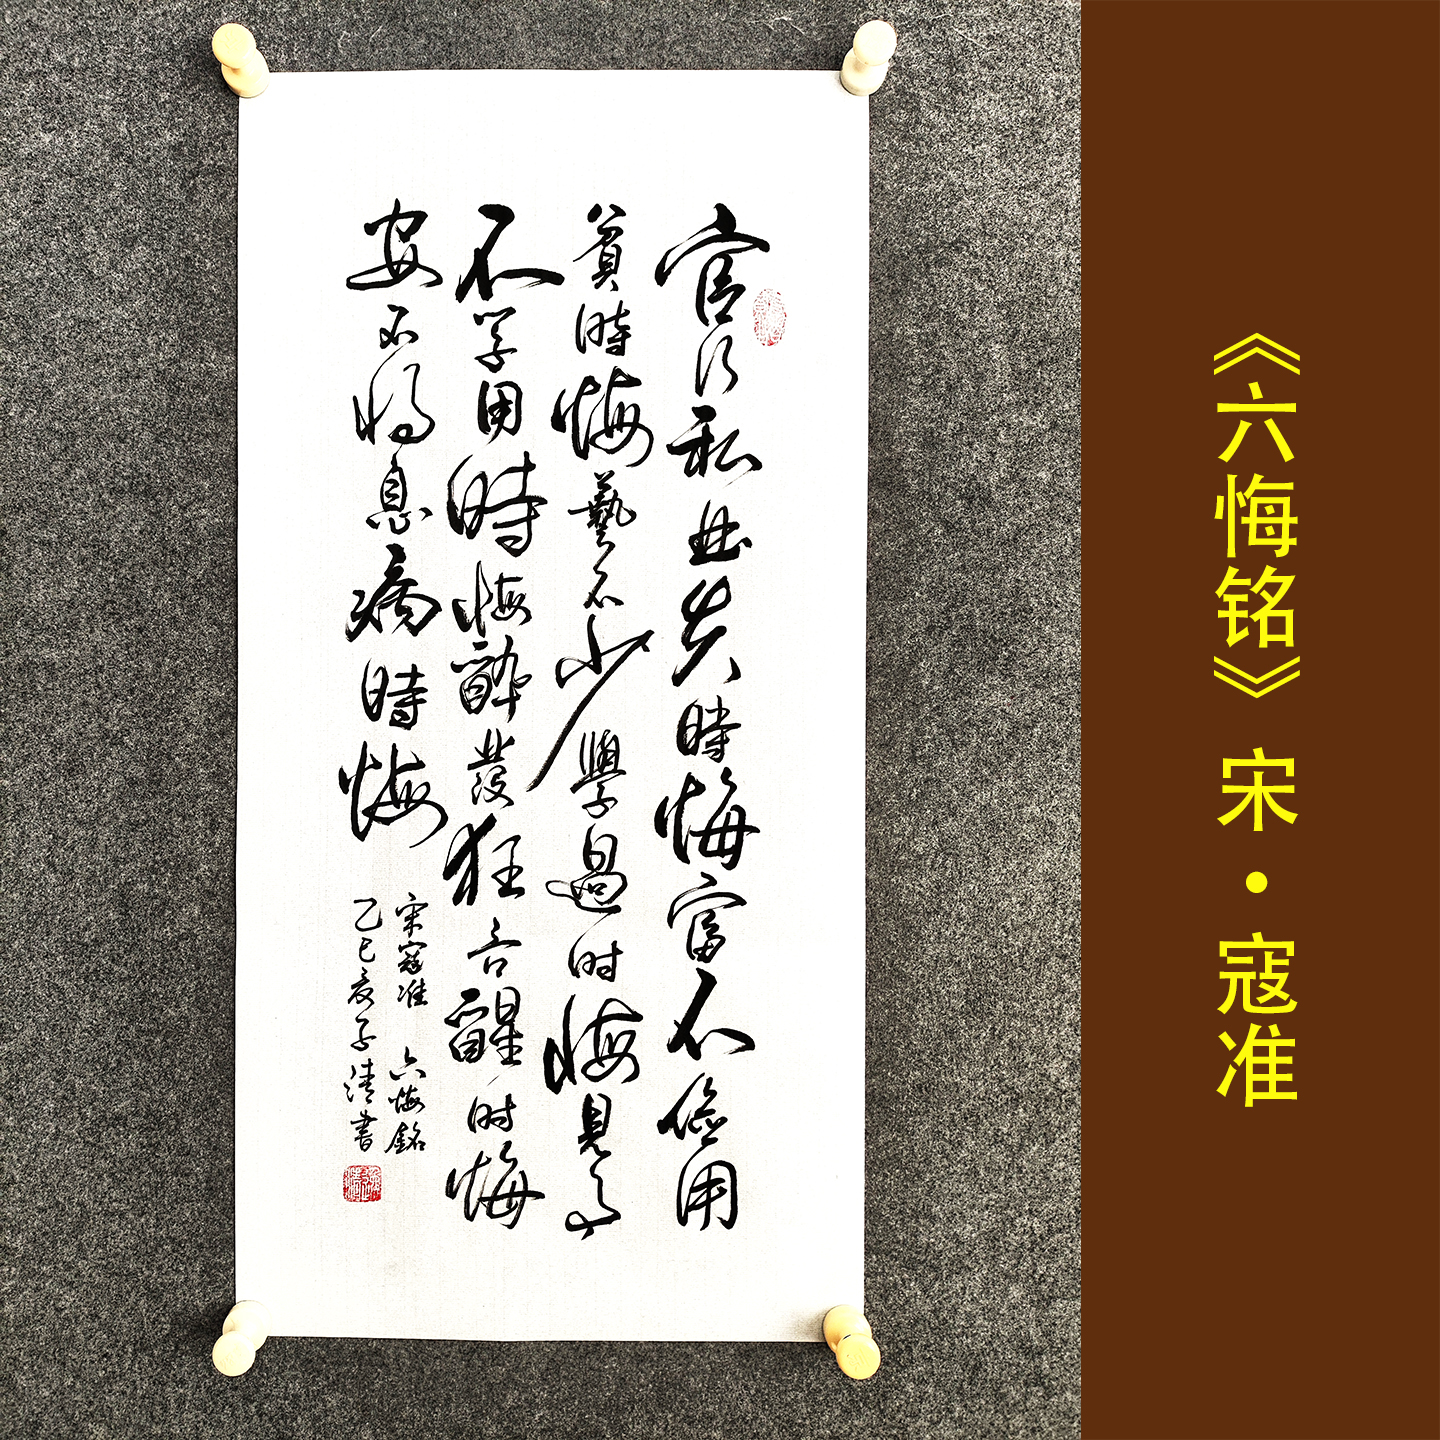 《六悔铭》 宋·寇准
官行私曲失時悔富不儉用
貧時悔藝不少學過时悔見事
不学用時悔醉發狂言醒时悔
安不将息病時悔
宋寇准 六悔銘
乙巳夏子清書